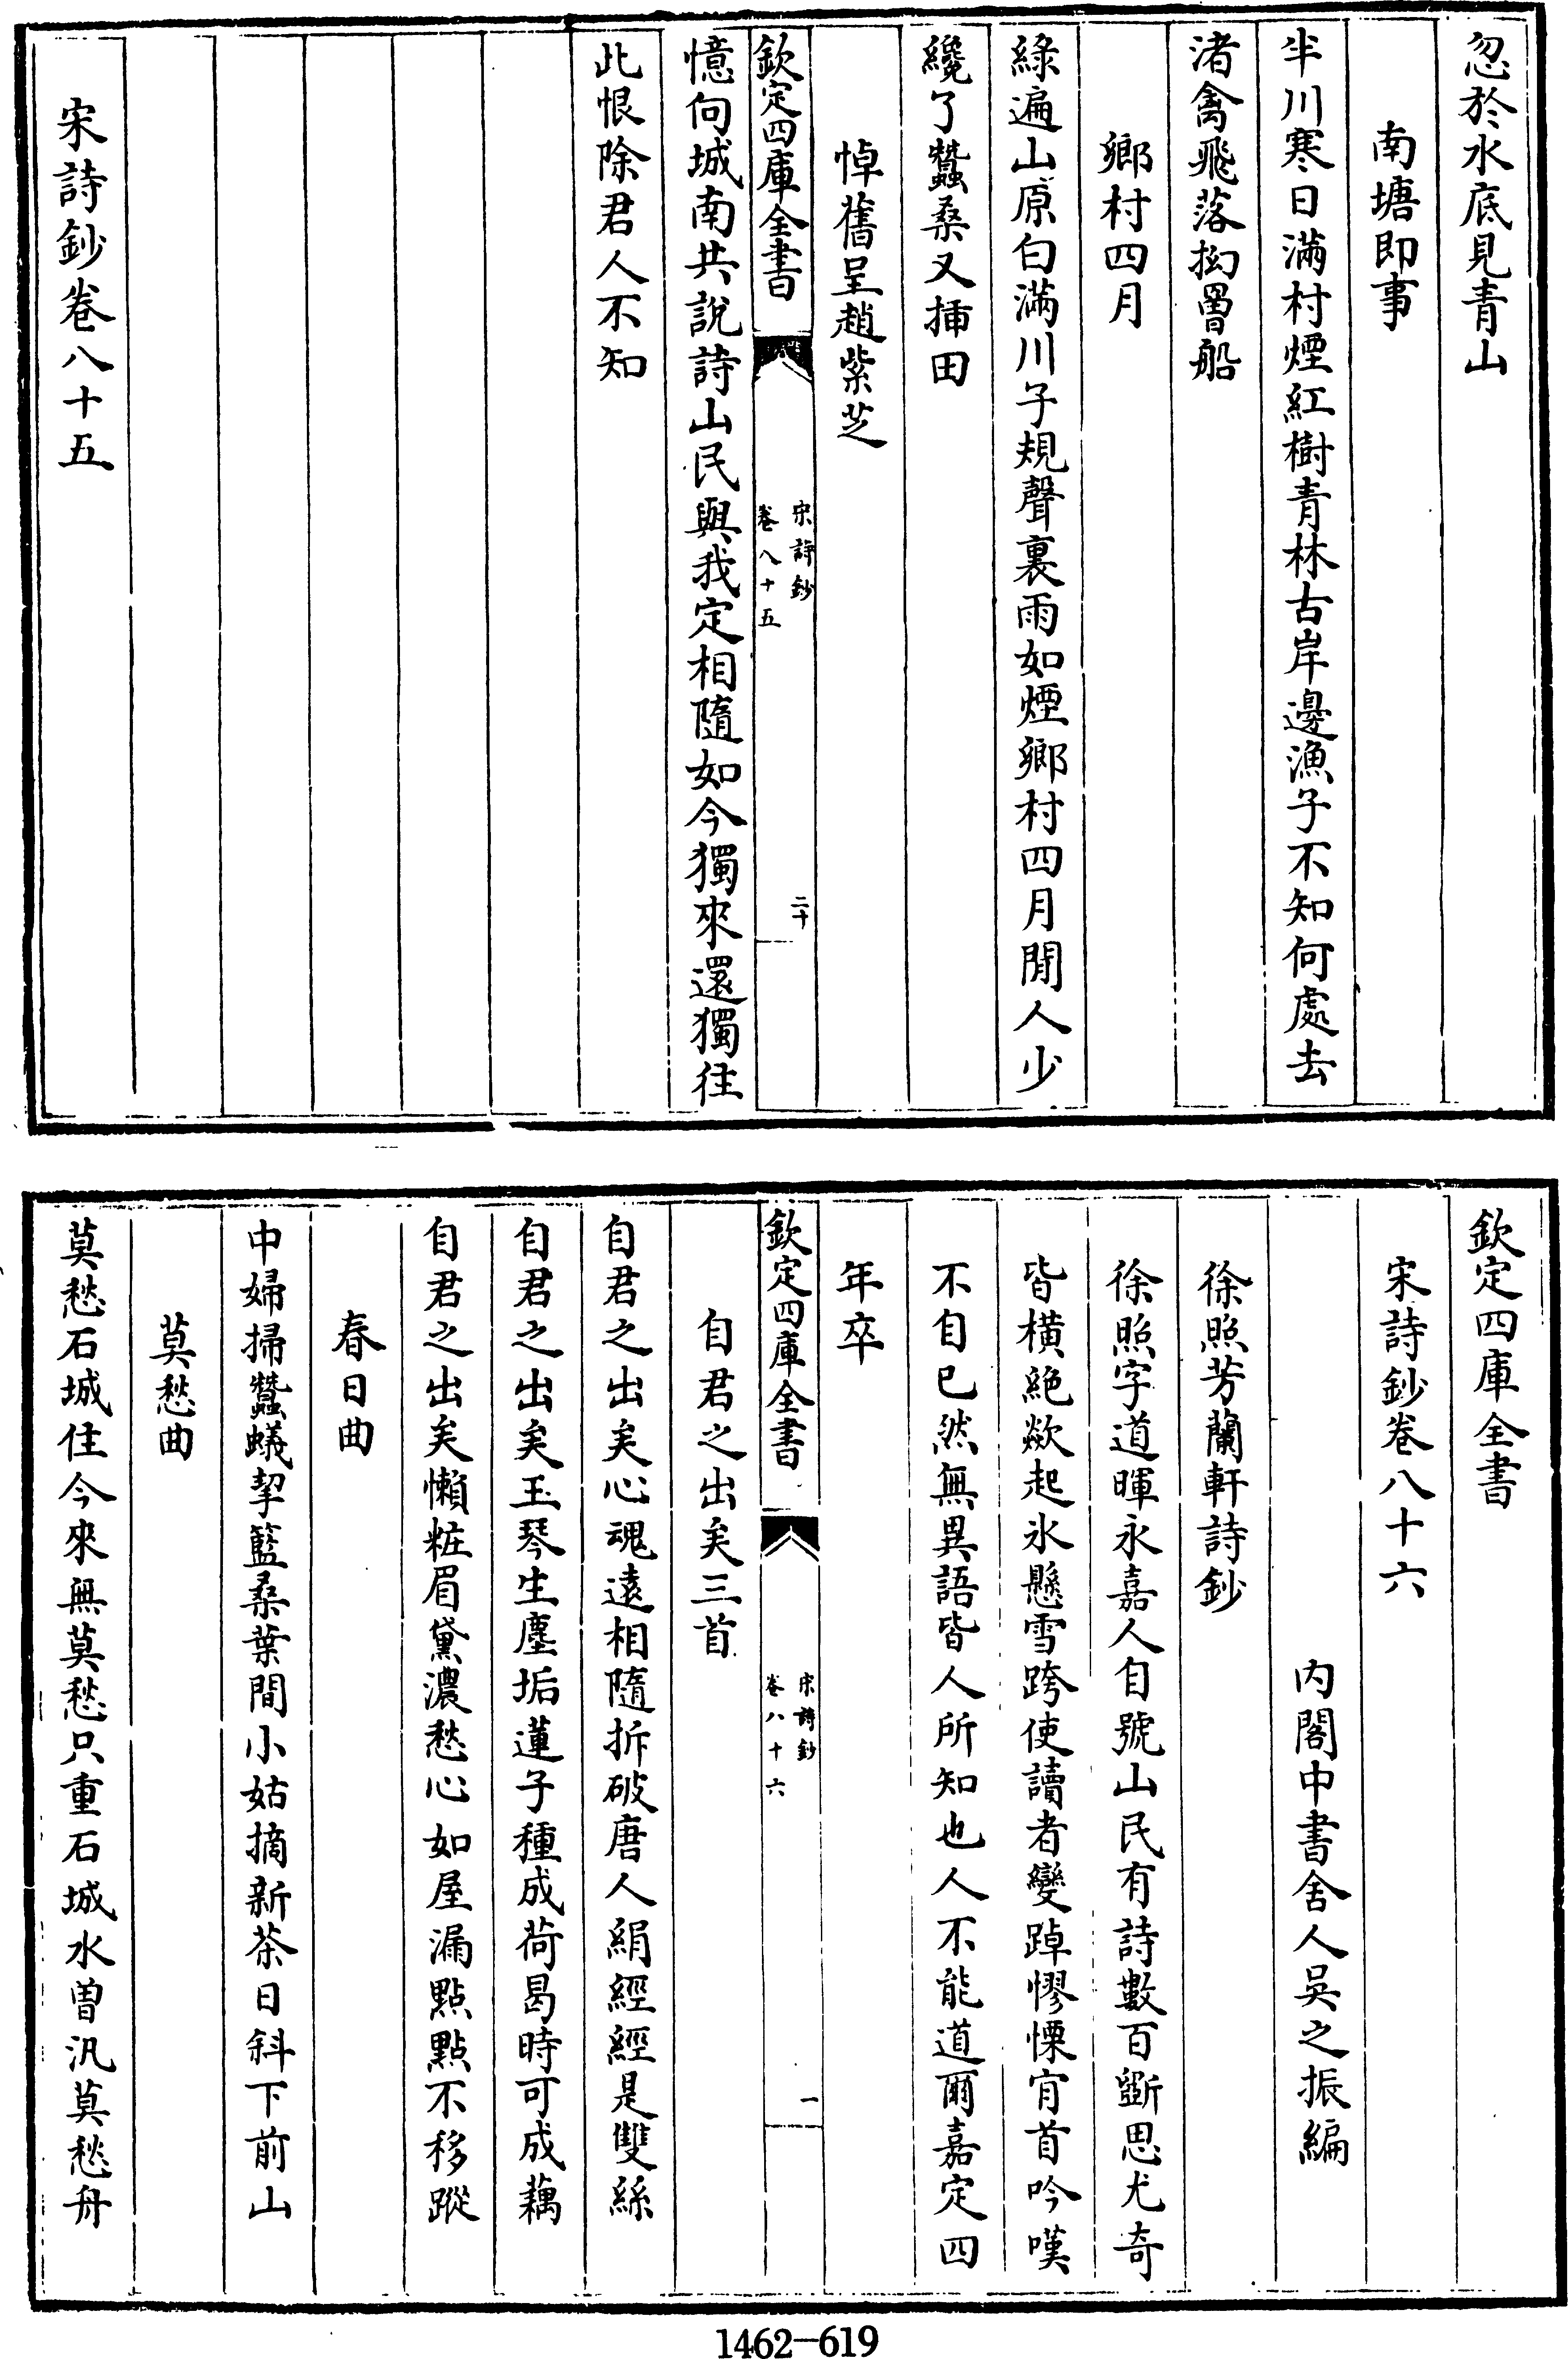 忽於水底見青山
南塘即事
半川寒日滿村煙紅樹青林古岸邊漁子不知何處去
渚禽飛落拗罾船
鄉村四月
綠遍山原白滿川子規聲裏雨如煙鄉村四月閒人少
纔了蠶桑又插田
悼舊呈趙紫芝
欽定四庫全書
宋詩鈔
卷八十五
二十
憶向城南共說詩山民與我定相隨如今獨來還獨往
此恨除君人不知
宋詩鈔卷八十五
欽定四庫全書
宋詩鈔卷八十六
內閣中書舍人吳之振編
徐照芳蘭軒詩鈔
徐照字道暉永嘉人自號山民有詩數百斲思尤奇
皆橫絕歘起氷懸雪跨使讀者變踔憀慄肎首吟嘆
不自已然無異語皆人所知也人不能道爾嘉定四
年卒
欽定四庫全書
宋詩鈔
卷八十六
一
自君之出矣三首
自君之出矣心魂遠相隨拆破唐人絹經經是雙絲
自君之出矣玉琴生塵垢蓮子種成荷曷時可成藕
自君之出矣懶粧眉黛濃愁心如屋漏點點不移蹤
春日曲
中婦掃蠶蟻挈籃桑葉間小姑摘新茶日斜下前山
莫愁曲
莫愁石城住今來無莫愁只重石城水曽汎莫愁舟
1462-619